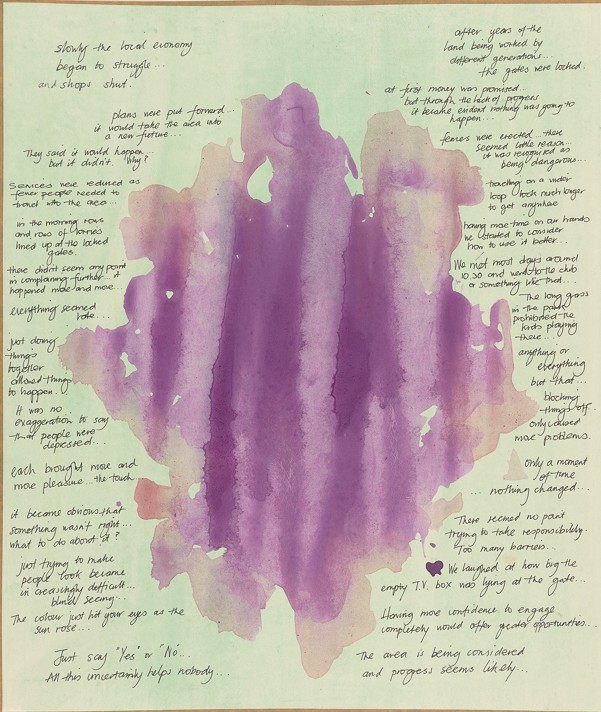 slowly the local economy
began to struggle...
and shops shut.
plans were put forward...
it would take the area into
a new future...
They said it would happen...
but it didn't. Why?
Services were reduced as
fewer people needed to
travel into the area...
in the morning rows
and rows of lorries
lined up at the locked
gates.
there didn't seem any point
in complaining further... it
happened more and more...
everything seemed
late...
just doing
things
together
allowed things
to happen.
It was no
exaggeration to say
that people were
depressed...
each brought more and
more pleasure... the touch
it became obvious that
something wasn't right...
what to do about it?
just trying to make
people look became
increasingly difficult...
blind seeing...
The colour just hit your eyes as the
sun rose...
Just say "Yes" or 'No'...
All this uncertainty helps nobody...
after years of the
land being worked by
different generations...
the gates were locked.
at first money was promised...
but through the lack of progress
it became evident nothing was going to
happen...
fences were erected... there
seemed little reason...
it was recognised as
being dangerous...
travelling on a wider
loop took much longer
to get anywhere
having more time on our hands
we started to consider
how to use it better...
We met most days around
10.30 and went to the club
or something like that...
The long grass
in the park
prohibited the
kids playing
there...
anything or
everything
but that...
blocking
things off
only caused
more problems.
only a moment
of time
... nothing changed...
There seemed no point
trying to take responsibility.
Too many barriers...
We laughed at how big the
empty T.V. box was lying at the gate...
Having more confidence to engage
completely would offer greater opportunities...
The area is being considered
and progress seems likely...